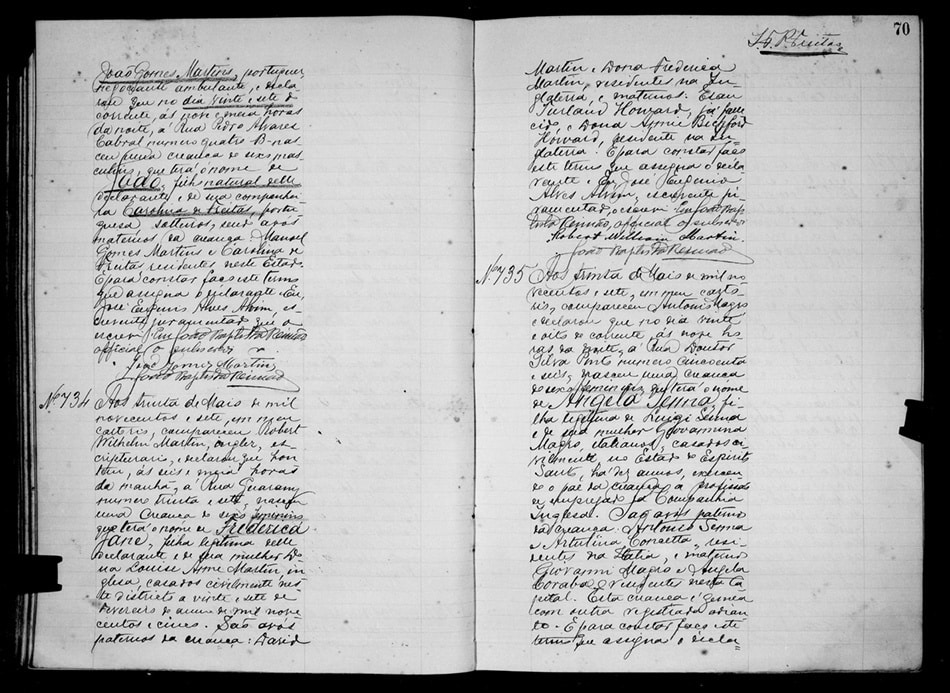 João Gomes Martins, portuguez,
negociante ambulante, e decla-
rou que no dia vinte e sete do
corrente, ás nove e meia horas
da noite, a Rua Pedro Alvares
Cabral numero quatro B nas-
ceu uma creança de sexo mas-
culino, que terá o nome de
João, filho natural delle
declarante e de sua companhei-
ra Carolina de Freitas, portu-
gueza, solteiros, seus avós
maternos da creança: Manoel
Gomes Martins e Carolina de
residentes neste Estado.
E para constar faço este termo
que assigna o declarante. Eu,
José Eugenio Alves Alvim, es-
crevente juramentado que o
escrevi. Eu João Baptista
official o subscrevi
José Gomes Martins
João Baptista
Nº 734 Aos trinta de Maio de mil
novecentos e sete, em meu
cartorio, compareceu Robert
Wilhelm Martin, inglez, es-
cripturario, e declarou que hon-
tem, ás seis e meia horas
da manhã, a Rua Guarany
numero trinta e sete, nasceu
uma creança de sexo feminino
que terá o nome de Frederica
Jane, filha legitima delle
declarante e de sua mulher Do-
na Louise Anne Martin, in-
gleza, casados civilmente nes-
te districto a vinte e sete de
Fevereiro de anno de mil nove
centos e cinco. São avós
paternos da creança: David
70
Martin e Dona Frederica
Martin, residentes na In-
glaterra, e maternos: Esau
Howard, já falle-
cido, e Dona Annie Bickford
Howard, residente na In-
glaterra. E para constar faço
este termo que assigna o decla-
rante. Eu José Eugenio
Alves Alvim, escrevente ju-
ramentado, o escrevi. Eu João Bap-
tista official o subscrevi
Robert William Martin.
João Baptista
Nº 735 Aos trinta de Maio de mil no-
vecentos e sete, em meu carto-
rio, compareceu Antonio Magro
e declarou que no dia vinte
e oito de corrente, ás nove ho-
ras da noite, á Rua Doutor
Silva Pinto numero cincoenta
e seis, nasceu uma creança
de sexo feminino que terá o nome
de Angela Senna, fi-
lha legitima de Luigi Senna
e de sua mulher Giovannina
Magro, italianos, casados ci-
vilmente no Estado de Espirito
Santo, ha dez annos, exercen-
do o pae da creança a profissão
de empregado da Companhia
Ingleza. Sao avós paternos
da creança: Antonio Senna
e Corzetta, resi-
dentes na Italia, e maternos
Giovanni Magro e Angela
residentes nesta Ca-
pital. Esta creança é gemea
com outra registrada adian-
te. E para constar faço este
termo que assigna o decla-